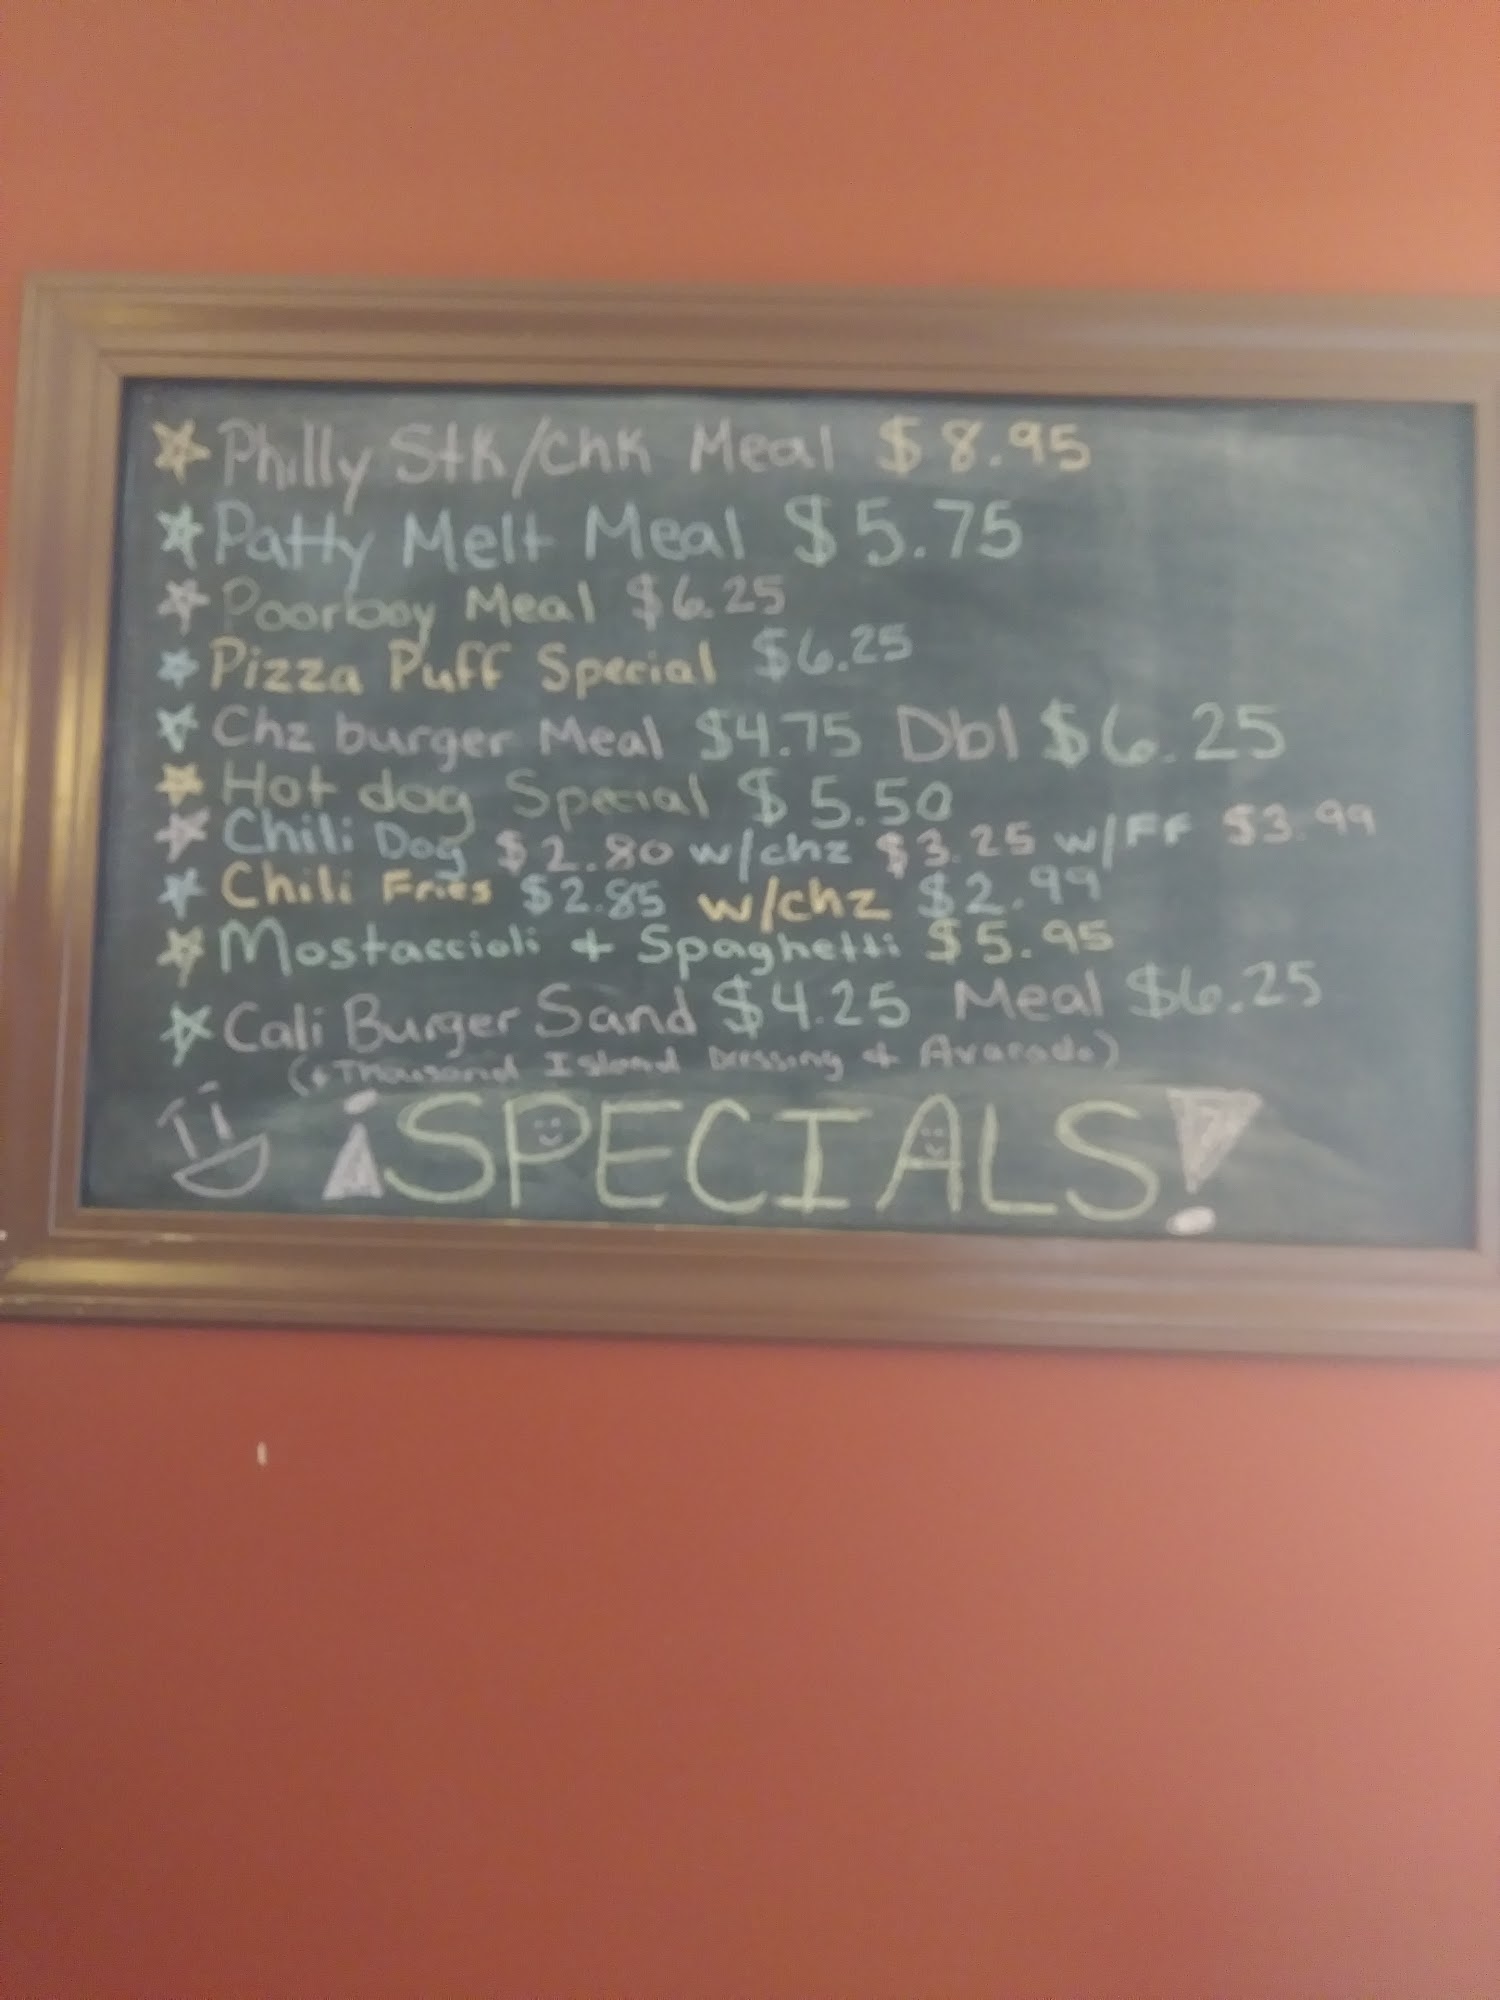 Philly Stk/Chk Meal $8.95
Patty Melt Meal $5.75
Poorboy Meal $6.25
Pizza Puff Special $6.25
Chz burger Meal $4.75 Dbl $6.25
Hot dog Special $5.50
Chili Dog $2.80 w/chz $3.25 w/FF $3.99
Chili Fries $2.85 w/chz $2.99
Mostaccioli + Spaghetti $5.95
Cali Burger Sand $4.25 Meal $6.25
(+ Thousand Island Dressing + Avacado)
¡SPECIALS!